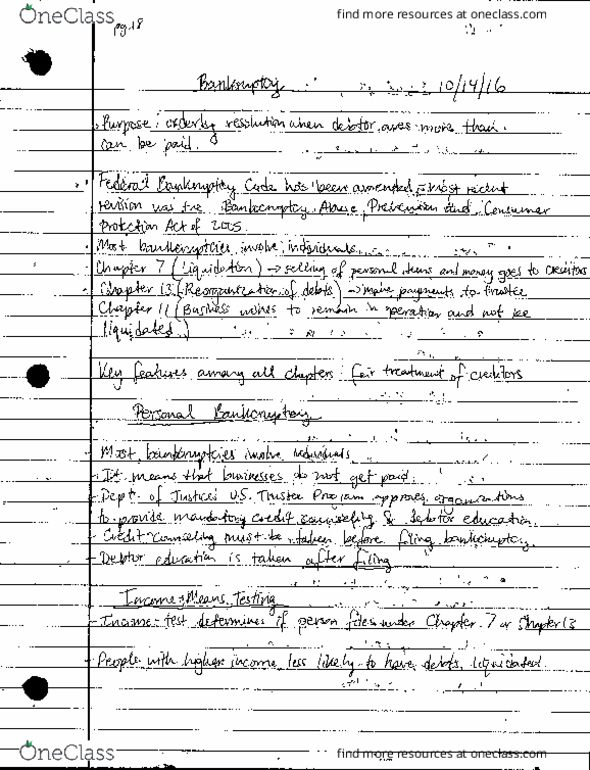 OneClass
find more resources at oneclass.com
pg.18
Bankruptcy 10/14/16
Purpose: orderly resolution when debtor owes more than
can be paid.
Federal Bankruptcy Code has been amended - most recent
revision was the Bankruptcy Abuse Prevention and Consumer
Protection Act of 2005
Most bankruptcies involve individuals
Chapter 7 (Liquidation) → selling of personal items and money goes to creditors
Chapter 13 (Reorganization of debts) → make payments to trustee
Chapter 11 (Business wishes to remain in operation and not be
liquidated)
Key features among all chapters: fair treatment of creditors
Personal Bankruptcy
- Most bankruptcies involve individuals
- It means that businesses do not get paid.
- Dept. of Justice: U.S. Trustee Program approves organizations
to provide mandatory credit counseling & debtor education.
- Credit counseling must be taken before filing bankruptcy
- Debtor education is taken after filing
Income - Means Testing
- Income - test determines if person files under Chapter 7 or Chapter 13
- People with higher income less likely to have debts liquidated.
OneClass
find more resources at oneclass.com